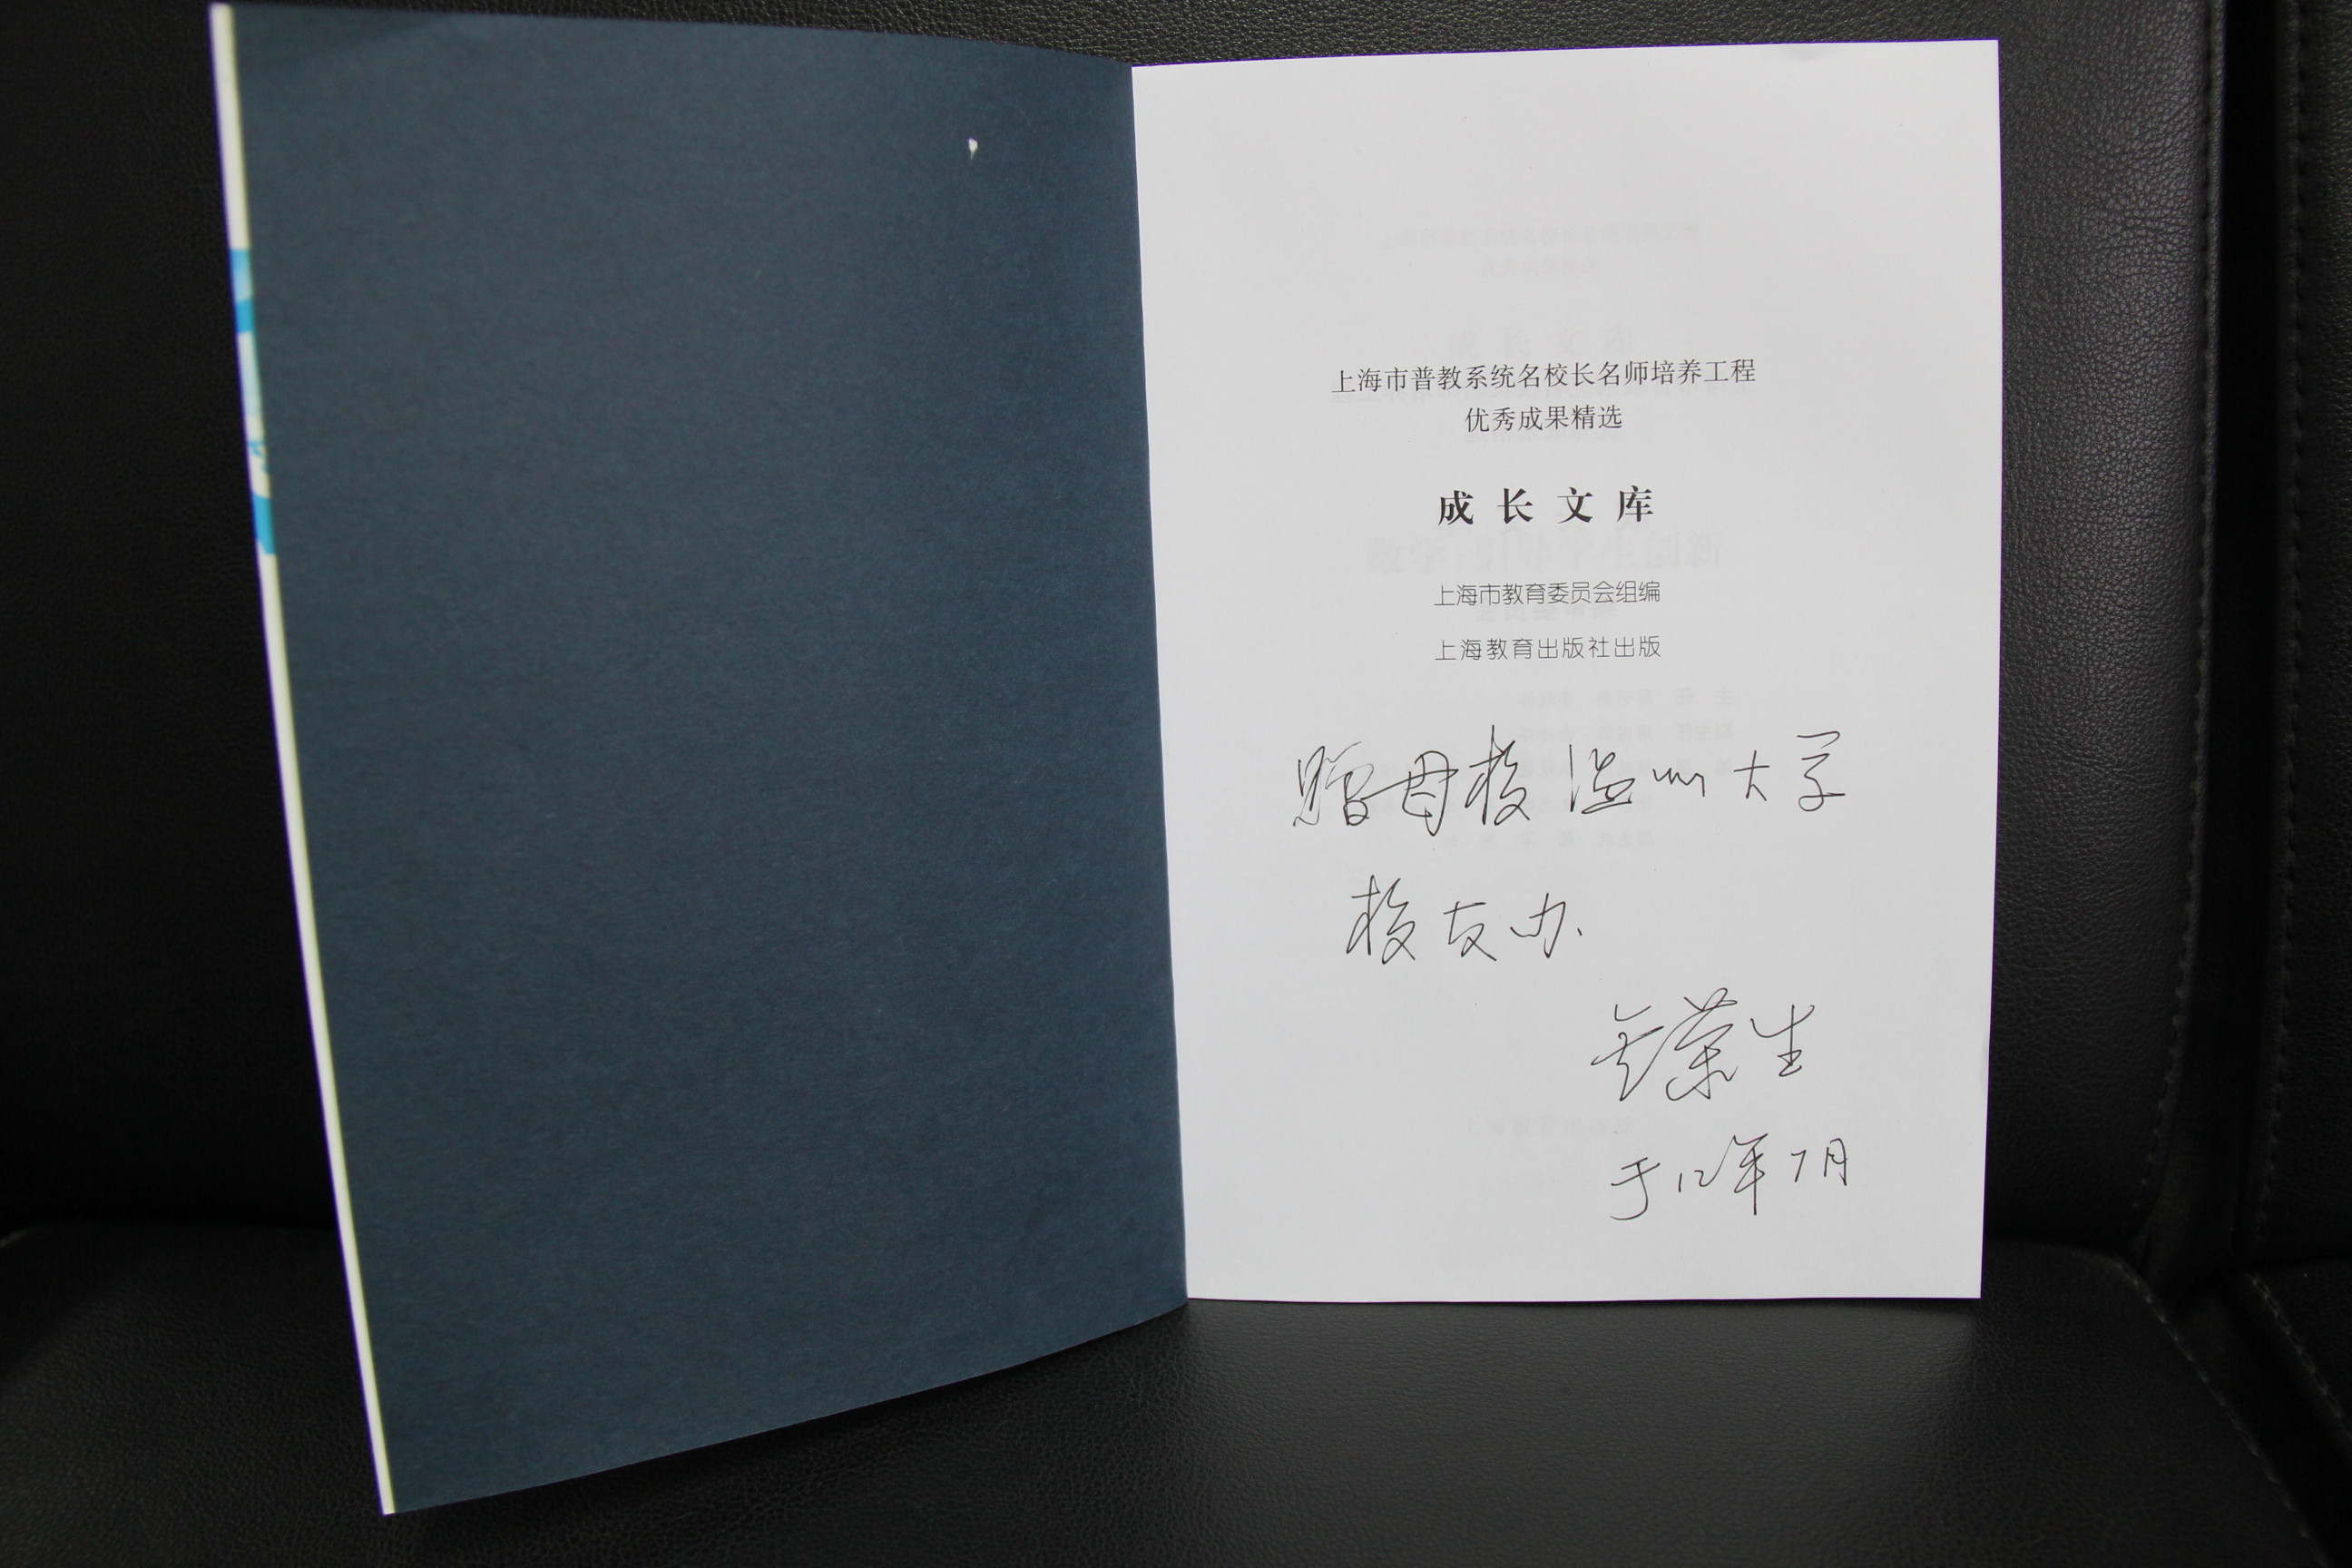 上海市普教系统名校长名师培养工程
优秀成果精选
成长文库
数学:引导学生创新
上海市教育委员会组编
上海教育出版社出版
赠母校温州大学
校友办
荣生
于12年7月